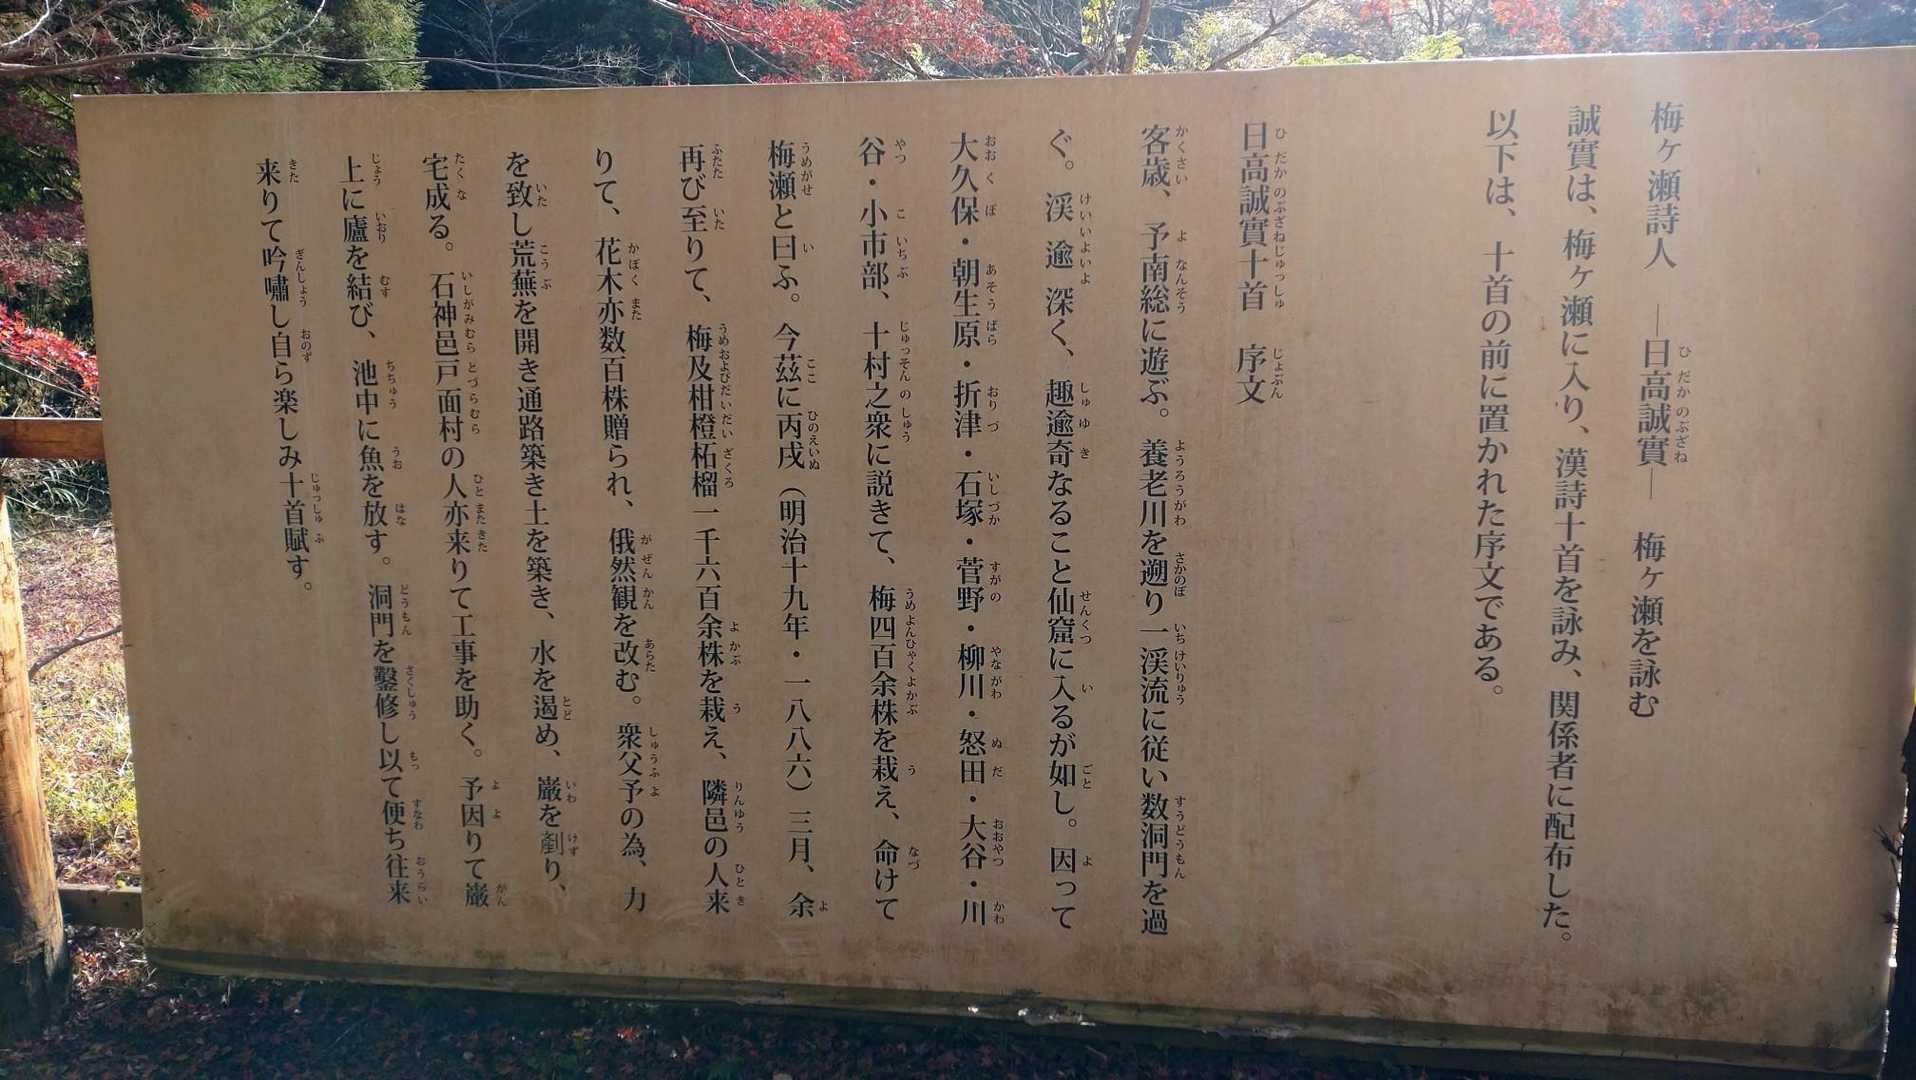 梅ヶ瀬詩人　―日高誠實―　梅ヶ瀬を詠む
誠實は、梅ヶ瀬に入り、漢詩十首を詠み、関係者に配布した。
以下は、十首の前に置かれた序文である。
日高誠實十首　序文
客歳、予南総に遊ぶ。養老川を遡り一渓流に従い数洞門を過
ぐ。渓逾深く、趣逾奇なること仙窟に入るが如し。因って
大久保・朝生原・折津・石塚・菅野・柳川・怒田・大谷・川
谷・小市部、十村之衆に説きて、梅四百余株を栽え、命けて
梅瀬と曰ふ。今茲に丙戌（明治十九年・一八八六）三月、余
再び至りて、梅及柑橙柘榴一千六百余株を栽え、隣邑の人来
りて、花木亦数百株贈られ、俄然観を改む。衆父予の為、力
を致し荒蕪を開き通路築き土を築き、水を遏め、巌を剷り、
宅成る。石神邑戸面村の人亦来りて工事を助く。予因りて巌
上に廬を結び、池中に魚を放す。洞門を鑿修し以て便ち往来
来りて吟嘯し自ら楽しみ十首賦す。